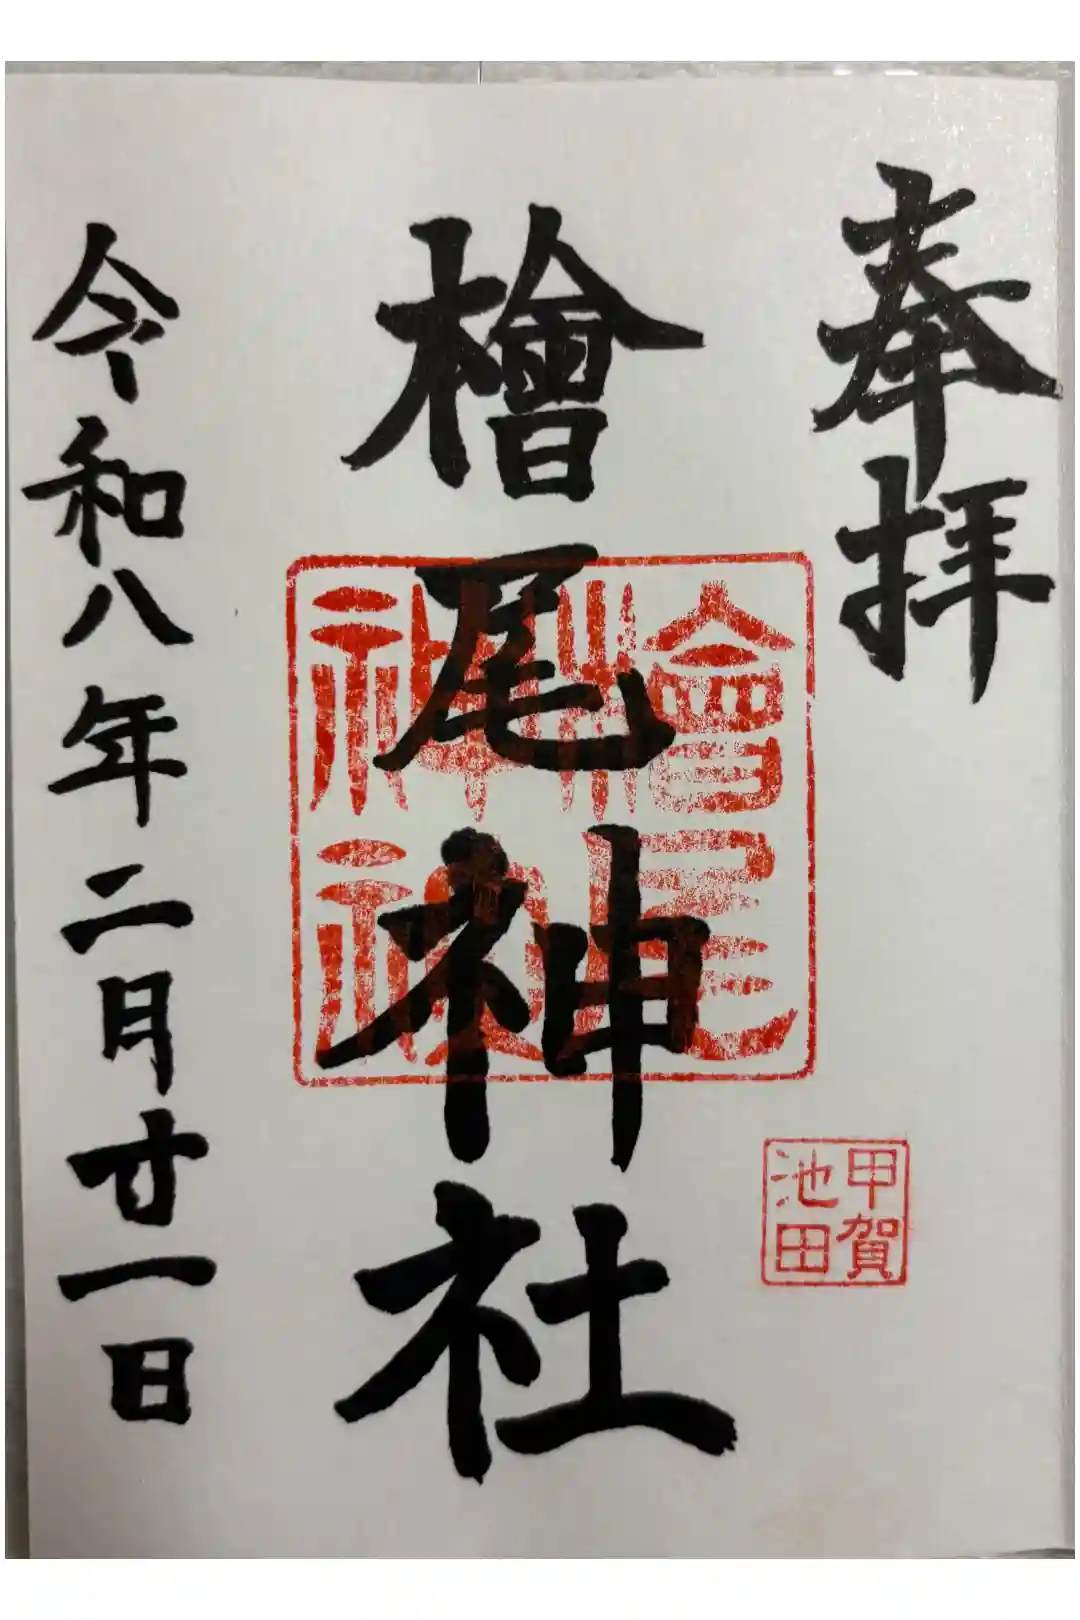 奉拝
檜尾神社
檜尾
神社
甲賀
池田
令和八年二月廿一日